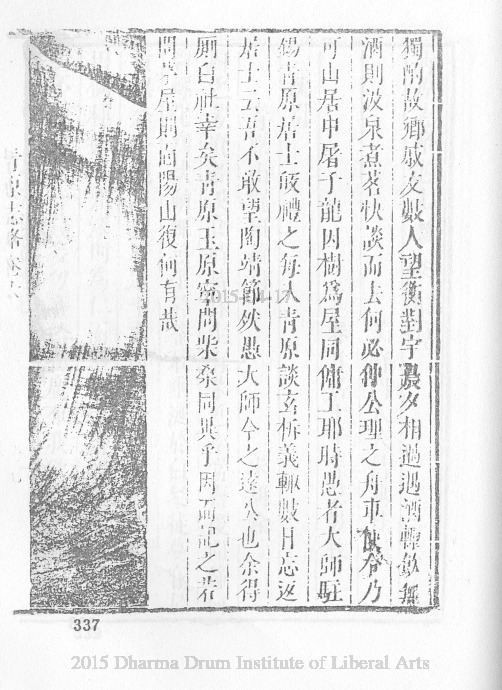 獨酌故鄉戚友數人望衡對宇晨夕相過遇酒輒飲無
酒則汲泉煮茗快談而去何必仲公理之舟車使谷乃
可山居申屠子龍因樹為屋同傭工耶時愚者大師駐
錫青原居士皈禮之每入青原談玄析義輒數日忘返
居士云吾不敢望陶靖節然愚大師今之遠公也余得
廁白社幸矣青原玉原寧問柴桑同異乎因而記之若
問茅屋則向陽山復何有哉
青原志略卷
337
2015 Dharma Drum Institute of Liberal Arts